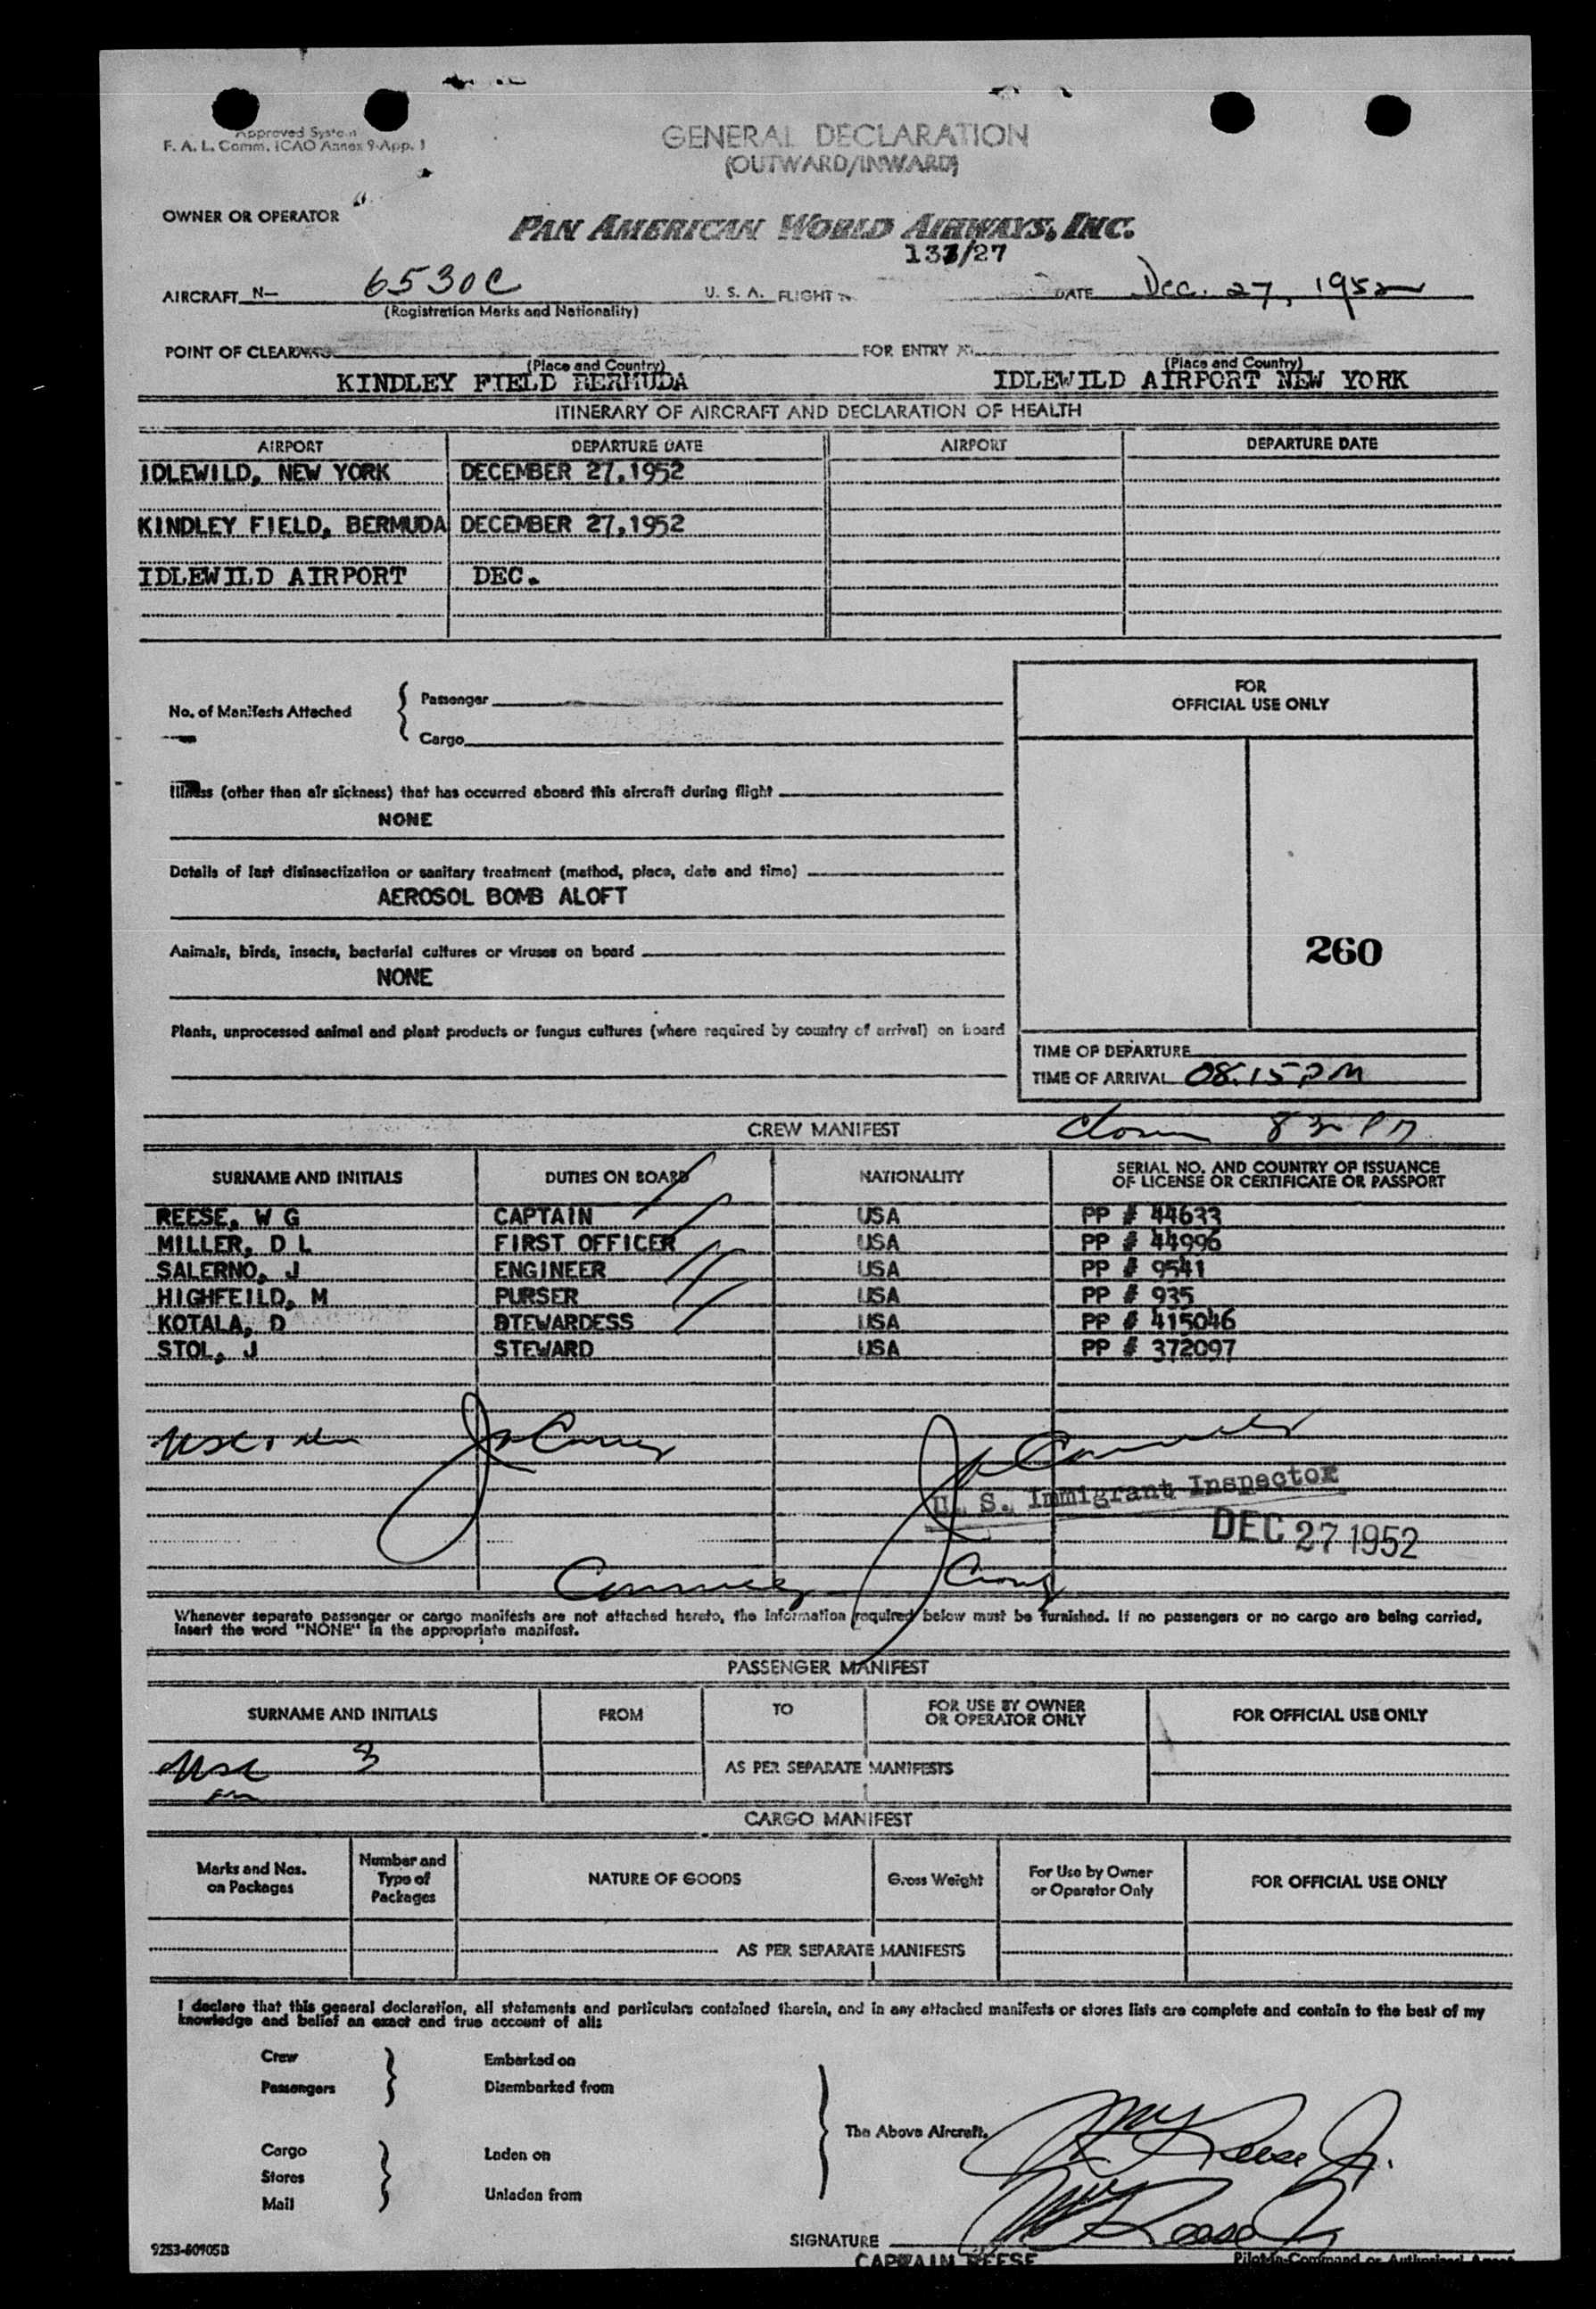 Approved System
F. A. L. Comm. ICAO Annex 9-App. 1
GENERAL DECLARATION
(OUTWARD/INWARD)
OWNER OR OPERATOR
PAN AMERICAN WORLD AIRWAYS, INC.
AIRCRAFT N- 6530C U. S. A. FLIGHT DATE Dec. 27, 1952
(Registration Marks and Nationality)
POINT OF CLEARANCE FOR ENTRY AT
(Place and Country) (Place and Country)
KINDLEY FIELD BERMUDA IDLEWILD AIRPORT NEW YORK
ITINERARY OF AIRCRAFT AND DECLARATION OF HEALTH
AIRPORT DEPARTURE DATE AIRPORT DEPARTURE DATE
IDLEWILD, NEW YORK DECEMBER 27,1952
KINDLEY FIELD, BERMUDA DECEMBER 27,1952
IDLEWILD AIRPORT DEC.
No. of Manifests Attached
Passenger
Cargo
FOR
OFFICIAL USE ONLY
Illness (other than air sickness) that has occurred aboard this aircraft during flight
NONE
Details of last disinsectization or sanitary treatment (method, place, date and time)
AEROSOL BOMB ALOFT
Animals, birds, insects, bacterial cultures or viruses on board
NONE
260
Plants, unprocessed animal and plant products or fungus cultures (where required by country of arrival) on board
TIME OF DEPARTURE
TIME OF ARRIVAL 08.15 PM
CREW MANIFEST
SURNAME AND INITIALS DUTIES ON BOARD NATIONALITY SERIAL NO. AND COUNTRY OF ISSUANCE
OF LICENSE OR CERTIFICATE OR PASSPORT
REESE, W G CAPTAIN USA PP # 44633
MILLER, D L FIRST OFFICER USA PP # 44996
SALERNO, J ENGINEER USA PP # 9541
HIGHFEILD, M PURSER USA PP # 935
KOTALA, D STEWARDESS USA PP # 415046
STOL, J STEWARD USA PP # 372097
U. S. Immigrant Inspector
DEC 27 1952
Whenever separate passenger or cargo manifests are not attached hereto, the information required below must be furnished. If no passengers or no cargo are being carried,
insert the word "NONE" in the appropriate manifest.
PASSENGER MANIFEST
SURNAME AND INITIALS FROM TO FOR USE BY OWNER
OR OPERATOR ONLY FOR OFFICIAL USE ONLY
USC 3
AS PER SEPARATE MANIFESTS
CARGO MANIFEST
Marks and Nos.
on Packages
Number and
Type of
Packages
NATURE OF GOODS
Gross Weight
For Use by Owner
or Operator Only
FOR OFFICIAL USE ONLY
AS PER SEPARATE MANIFESTS
I declare that this general declaration, all statements and particulars contained therein, and in any attached manifests or stores lists are complete and contain to the best of my
knowledge and belief an exact and true account of all:
Crew Embarked on
Passengers Disembarked from
The Above Aircraft.
Cargo Laden on
Stores
Mail Unladen from
SIGNATURE
9253-60905B
CAPTAIN REESE Pilot-in-Command or Authorized Agent